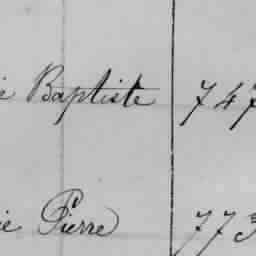 e Baptiste 747
ie Pierre 773